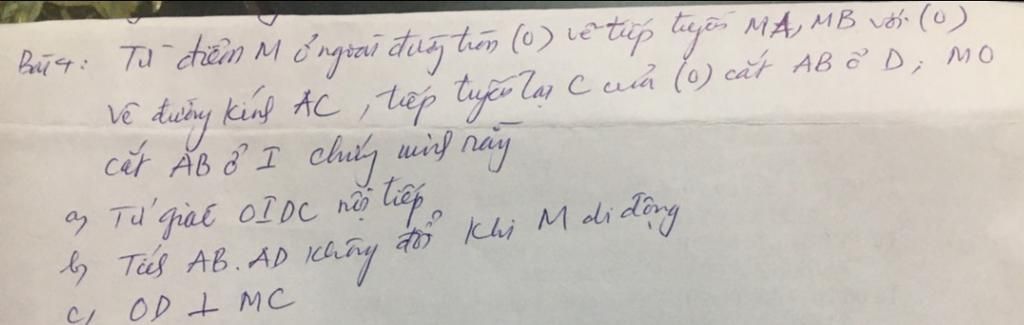 Bài 4: Từ điểm M ở ngoài đường tròn (O) vẽ tiếp tuyến MA, MB với (O)
Vẽ đường kính AC, tiếp tuyến tại C của (O) cắt AB ở D; MO
cắt AB ở I chứng minh rằng
a, Tứ giác OIDC nội tiếp
b, Tích AB.AD không đổi khi M di động
c, OD ⊥ MC